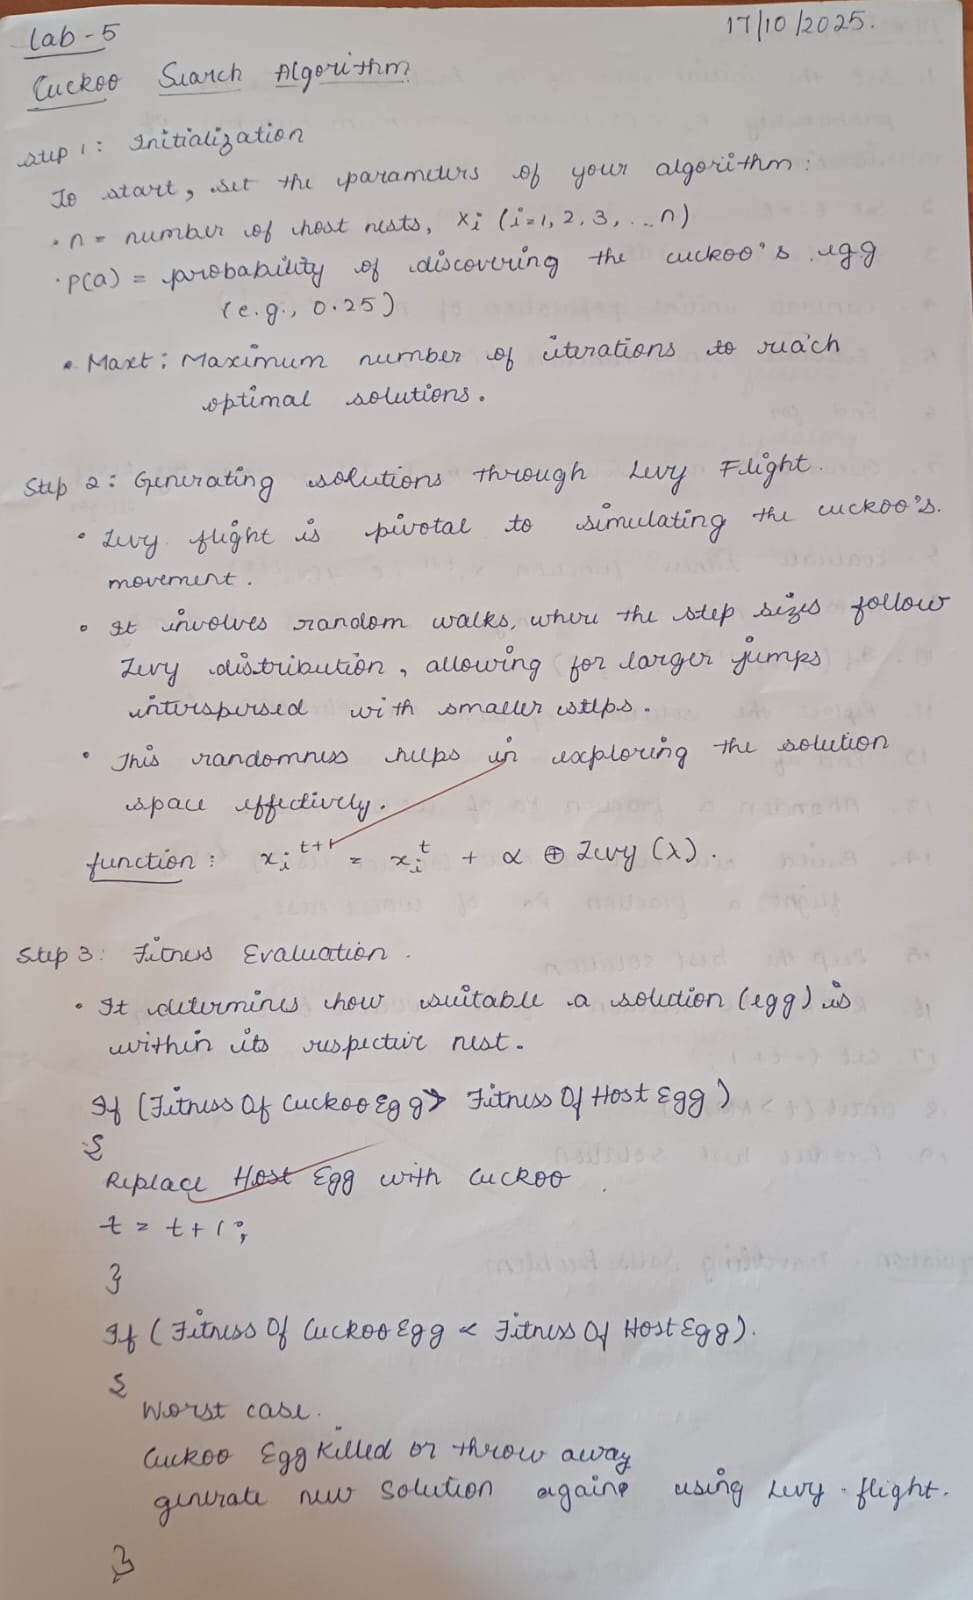 Lab - 5
17/10/2025.
Cuckoo Search Algorithm
Step 1: Initialization
To start, set the parameters of your algorithm:
• n = number of host nests, Xi (i=1, 2, 3, ... n)
• P(a) = probability of discovering the cuckoo's egg
(e.g., 0.25)
• Maxt: Maximum number of iterations to reach
optimal solutions.
Step 2: Generating solutions through Levy Flight.
• Levy flight is pivotal to simulating the cuckoo's.
movement.
• It involves random walks, where the step sizes follow
Levy distribution, allowing for larger jumps
interspersed with smaller steps.
• This randomness helps in exploring the solution
space effectively.
function: xᵢᵗ⁺¹ = xᵢᵗ + α ⊕ Levy (λ).
Step 3: Fitness Evaluation.
• It determines how suitable a solution (egg) is
within its respective nest.
If (Fitness Of Cuckoo Egg > Fitness Of Host Egg)
{
Replace Host Egg with cuckoo
t = t+1;
}
If (Fitness Of Cuckoo Egg < Fitness Of Host Egg).
{
Worst case.
Cuckoo Egg Killed or throw away
generate new solution again using Levy-flight.
}